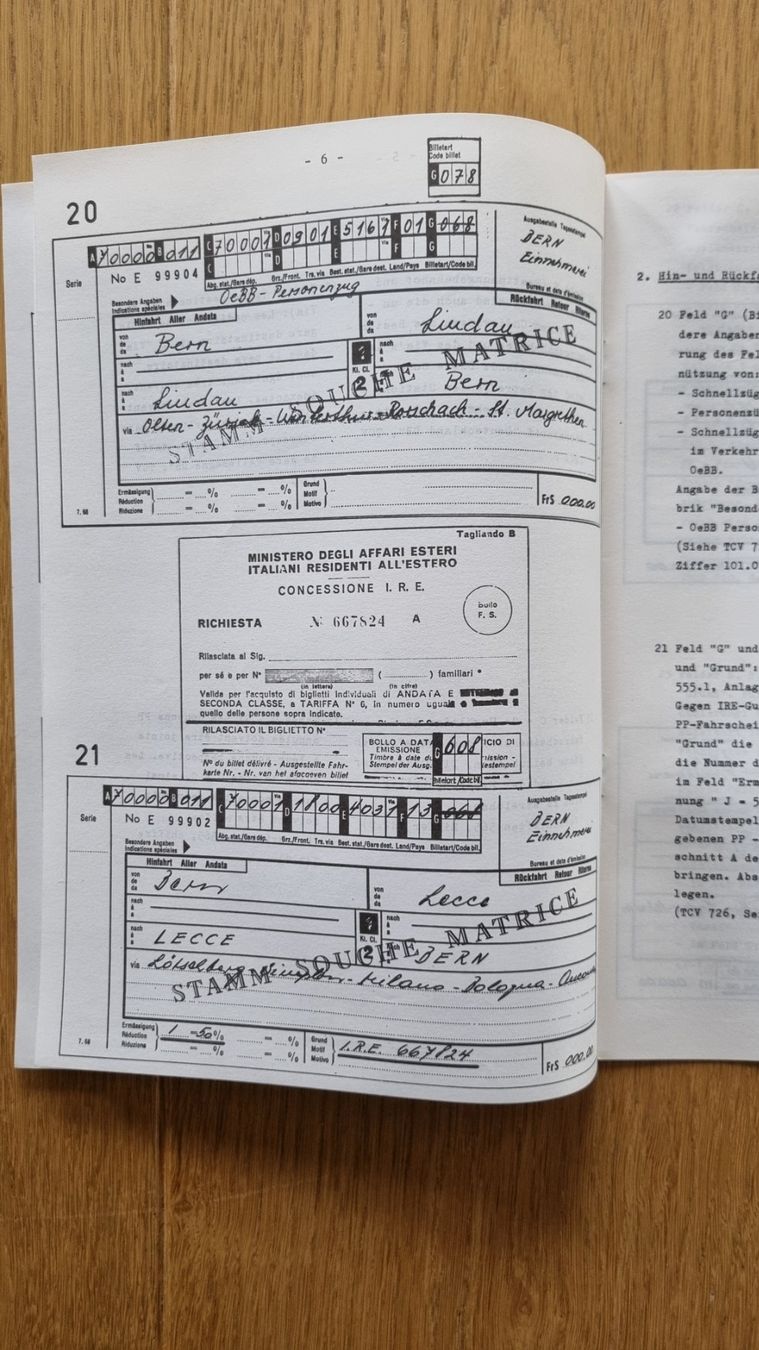 - 6 -
Billetart
Code billet
G 078
20
A Y0000 B 011 C 70007 D 0901 E 5161 F 01 G 068
Serie
No E 99904
Abg. stat./Gare dép. Grz./Front. Tra. via Best. stat./Gare dest. Land/Pays Billetart/Code bil.
Ausgabestelle Tagesstempel
BERN
Einnehmerei
Bureau et date d'émission
Besondere Angaben
Indications spéciales
OeBB - Personenzug
Hinfahrt Aller Andata
Rückfahrt Retour Ritorno
von
de
da
Bern
Lindau
nach
à
a
Kl. Cl.
2
Lindau
Bern
STAMM SOUCHE MATRICE
via Olten - Zürich - Winterthur - Rorschach - St. Margrethen
Ermässigung
Réduction
Riduzione
- % - %
Grund
Motif
Motivo
FrS 000.00
7. 68
Tagliando B
MINISTERO DEGLI AFFARI ESTERI
ITALIANI RESIDENTI ALL'ESTERO
CONCESSIONE I. R. E.
RICHIESTA № 667824 A
bollo
F. S.
Rilasciata al Sig.
per sé e per N° ( ) familiari *
(in lettere) (in cifre)
Valida per l'acquisto di biglietti individuali di ANDATA E
SECONDA CLASSE, a TARIFFA N° 6, in numero uguale
quello delle persone sopra indicate.
RILASCIATO IL BIGLIETTO N°
BOLLO A DATA
EMISSIONE
G 608
ICIO DI
N° du billet délivré - Ausgestellte Fahr-
karte Nr. - Nr. van het afgegeven biljet
Timbre à date du
Stempel der Ausg.
Billetart/Code bil.
21
A Y0000 B 011 C 70007 D 1100 E 4031 F 13 G 068
Serie
No E 99902
Abg. stat./Gare dép. Grz./Front. Tra. via Best. stat./Gare dest. Land/Pays Billetart/Code bil.
Ausgabestelle Tagesstempel
BERN
Einnehmerei
Bureau et date d'émission
Besondere Angaben
Indications spéciales
Hinfahrt Aller Andata
Rückfahrt Retour Ritorno
von
de
da
Bern
Lecce
nach
à
a
Kl. Cl.
2
LECCE
BERN
STAMM SOUCHE MATRICE
via Lötschberg - Simplon - Milano - Bologna - Ancona
Ermässigung
Réduction
Riduzione
1 - 50 % - %
Grund
Motif
Motivo
I.R.E. 667824
FrS 000.00
7. 68
2. Hin- und Rückfa
20 Feld "G" (Bi
dere Angaben
rung des Fel
nützung von:
- Schnellzüg
- Personenzü
- Schnellzüg
im Verkehr
OeBB.
Angabe der B
brik "Besond
- OeBB Perso
(Siehe TCV 7
Ziffer 101.0
21 Feld "G" und
und "Grund":
555.1, Anlag
Gegen IRE-Gu
PP-Fahrschei
"Grund" die
die Nummer d
im Feld "Erm
nung " J - 5
Datumstempel
gebenen PP -
schnitt A de
bringen. Abs
legen.
(TCV 726, Se